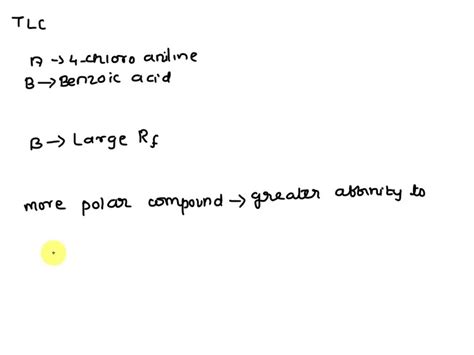 TLC
A → 4-chloro aniline
B → Benzoic acid
B → Large Rf
more polar compound → greater affinity to